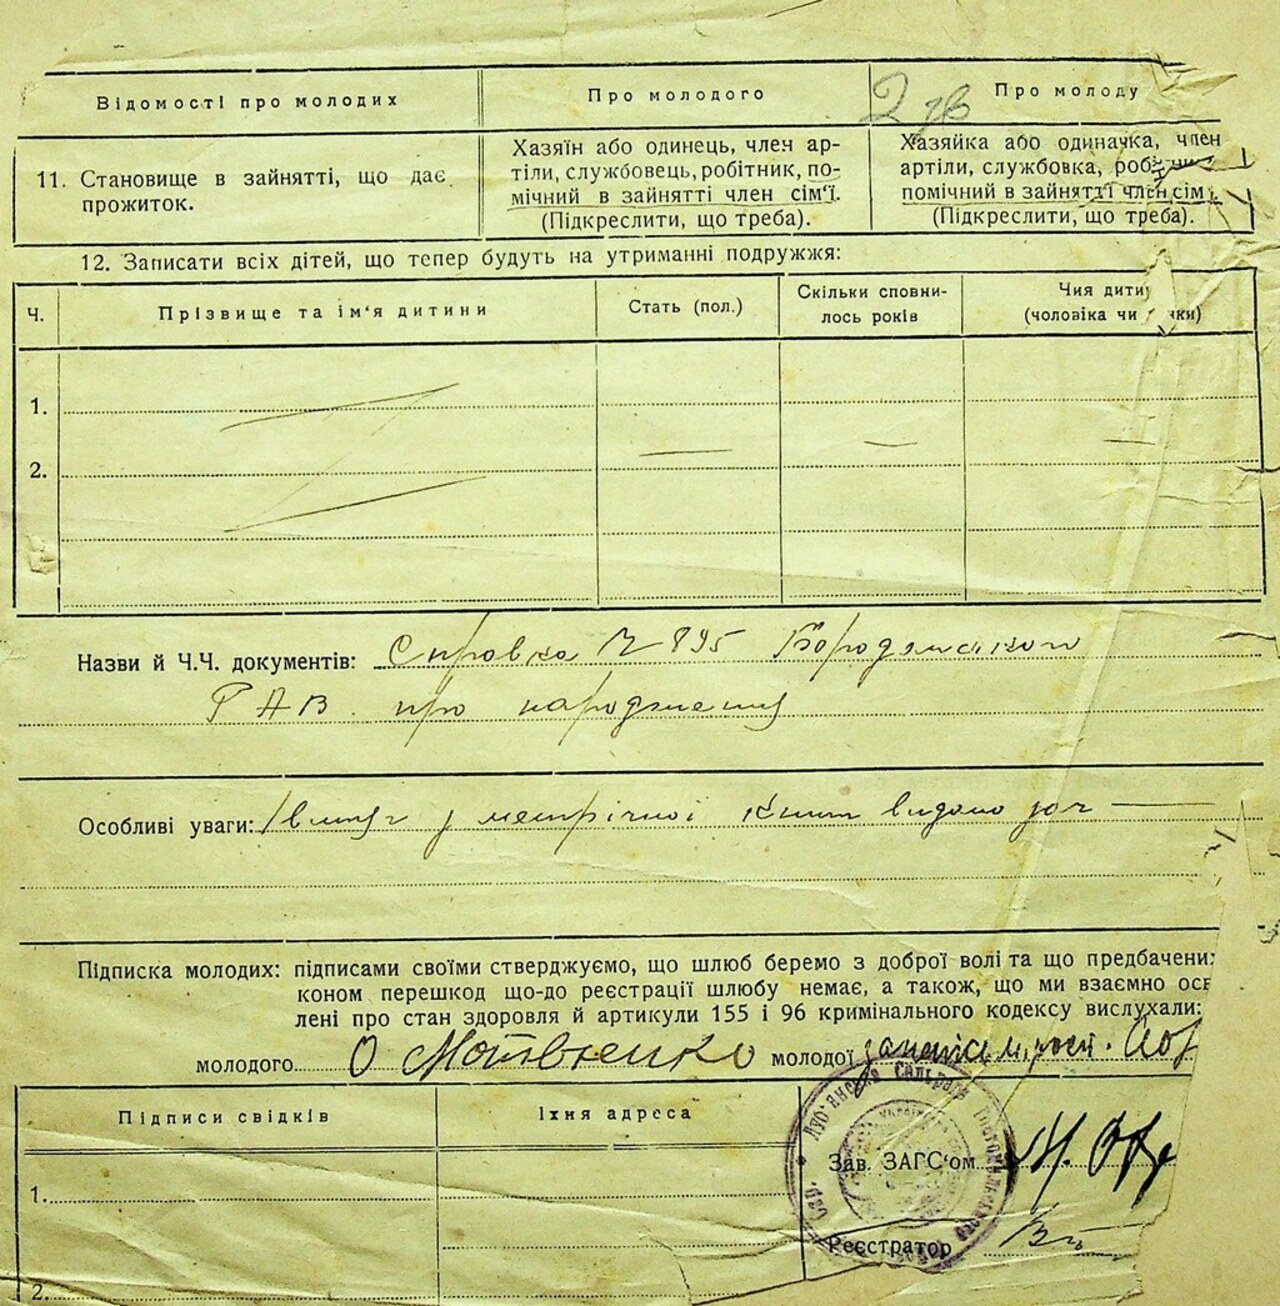 Відомості про молодих
Про молодого
2 зв
Про молоду
11. Становище в зайнятті, що дає
прожиток.
Хазяїн або одинець, член ар-
тіли, службовець, робітник, по-
мічний в зайнятті член сім'ї.
(Підкреслити, що треба).
Хазяйка або одиначка, член
артіли, службовка, робітниця
помічний в зайнятті член сім'ї.
(Підкреслити, що треба).
12. Записати всіх дітей, що тепер будуть на утриманні подружжя:
Ч.
Прізвище та ім'я дитини
Стать (пол.)
Скільки сповни-
лось років
Чия дити
(чоловіка чи нки)
1.
2.
Назви й Ч.Ч. документів: Справка № 895 Бородянського
РАВ про народження
Особливі уваги: Івитяг з метрічної книги видано
Підписка молодих: підписами своїми стверджуємо, що шлюб беремо з доброї волі та що предбачених
коном перешкод що-до реєстрації шлюбу немає, а також, що ми взаємно осв
лені про стан здоровля й артикули 155 і 96 кримінального кодексу вислухали:
молодого О Матвієнко молодої
Підписи свідків
Їхня адреса
Зав. ЗАГС'ом
Реєстратор
1.
2.
Луб'янська Сільрада Гостомельського
Українська